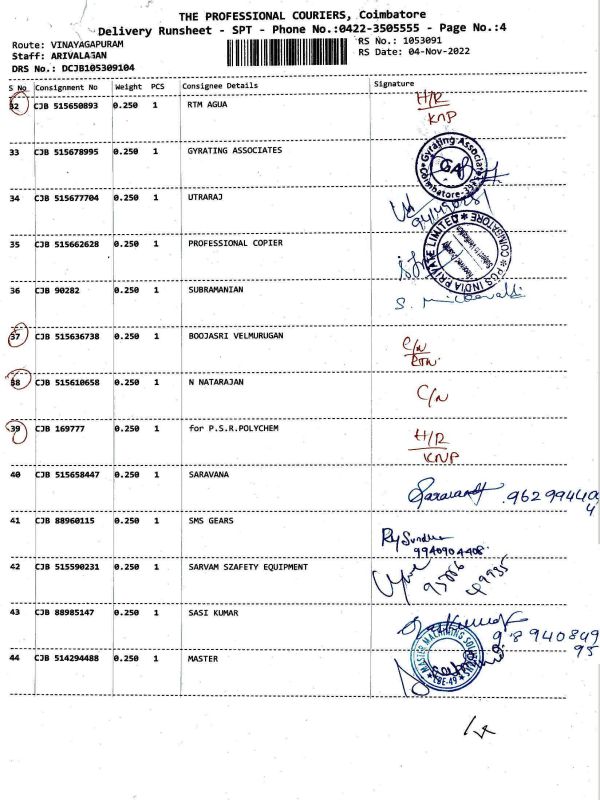 THE PROFESSIONAL COURIERS, Coimbatore
Delivery Runsheet - SPT - Phone No.:0422-3505555 - Page No.:4
Route: VINAYAGAPURAM
RS No.: 1053091
Staff: ARIVALAGAN
RS Date: 04-Nov-2022
DRS No.: DCJB105309104
S No Consignment No Weight PCS Consignee Details Signature
32 CJB 515650893 0.250 1 RTM AGUA H/R
KNP
33 CJB 515678995 0.250 1 GYRATING ASSOCIATES
Gyrating Associates
GA
Coimbatore-35
34 CJB 515677704 0.250 1 UTRARAJ
35 CJB 515662628 0.250 1 PROFESSIONAL COPIER
PCS INDIA PRIVATE LIMITED * COIMBATORE *
36 CJB 90282 0.250 1 SUBRAMANIAN
37 CJB 515636738 0.250 1 BOOJASRI VELMURUGAN C/N
38 CJB 515610658 0.250 1 N NATARAJAN C/N
39 CJB 169777 0.250 1 for P.S.R.POLYCHEM H/R
KNP
40 CJB 515658447 0.250 1 SARAVANA
9629944 0
4
41 CJB 88960115 0.250 1 SMS GEARS
9940904408
42 CJB 515590231 0.250 1 SARVAM SZAFETY EQUIPMENT
43 CJB 88985147 0.250 1 SASI KUMAR
98940849
95
44 CJB 514294488 0.250 1 MASTER
MASTER MACHINING SOLUTIONS
CBE-49